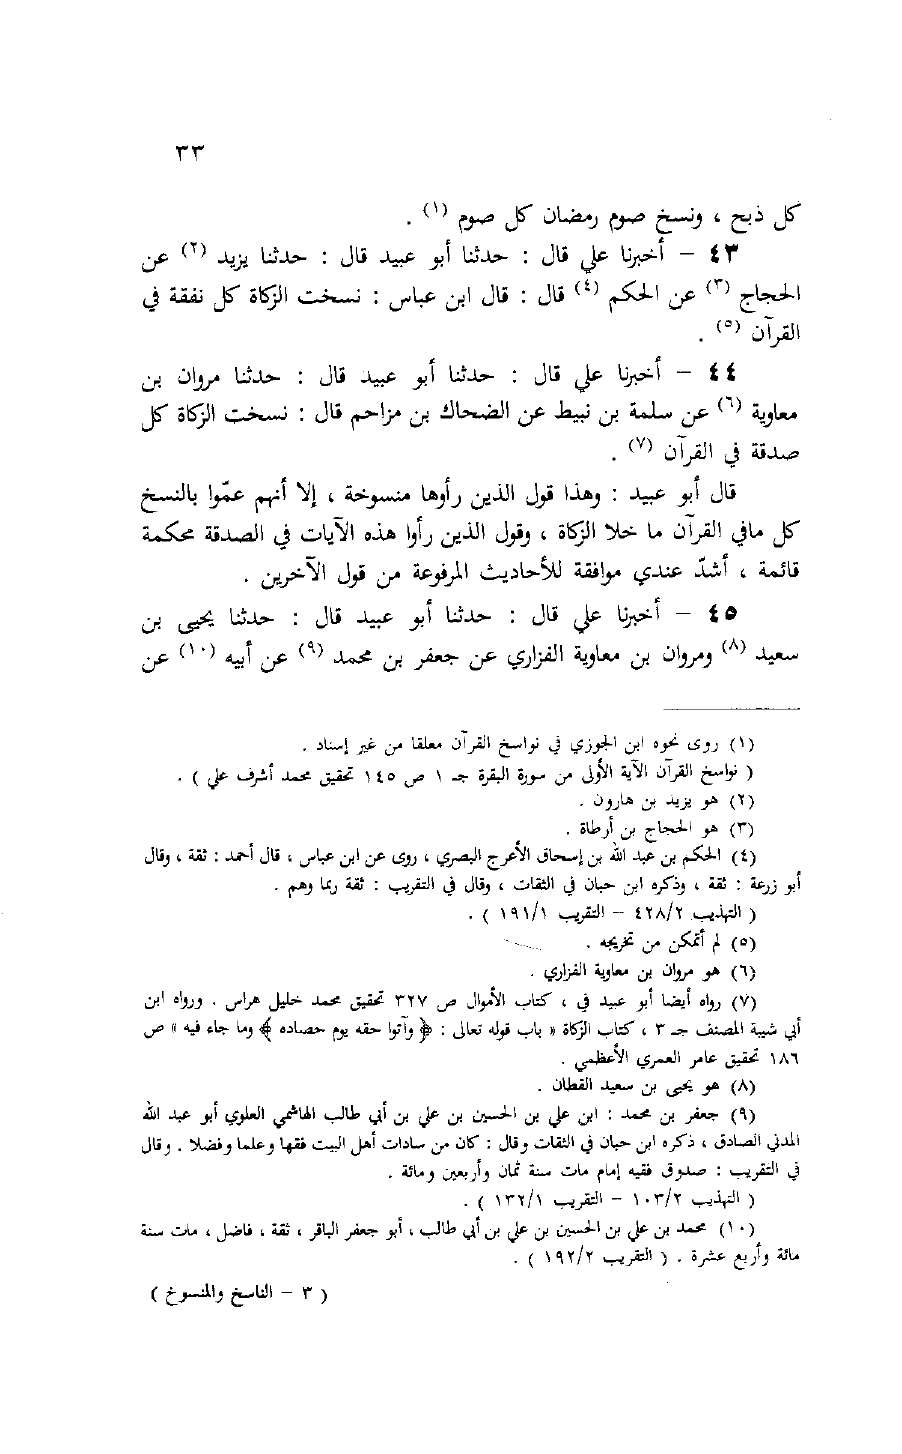 ٣٣
كل ذبح ، ونسخ صوم رمضان كل صوم (١) .
٤٣ – أخبرنا علي قال : حدثنا أبو عبيد قال : حدثنا يزيد (٢) عن
الحجاج (٣) عن الحكم (٤) قال : قال ابن عباس : نسخت الزكاة كل نفقة في
القرآن (٥) .
٤٤ – أخبرنا علي قال : حدثنا أبو عبيد قال : حدثنا مروان بن
معاوية (٦) عن سلمة بن نبيط عن الضحاك بن مزاحم قال : نسخت الزكاة كل
صدقة في القرآن (٧) .
قال أبو عبيد : وهذا قول الذين رأوها منسوخة ، إلا أنهم عمّوا بالنسخ
كل مافي القرآن ما خلا الزكاة ، وقول الذين رأوا هذه الآيات في الصدقة محكمة
قائمة ، أشدّ عندي موافقة للأحاديث المرفوعة من قول الآخرين .
٤٥ – أخبرنا علي قال : حدثنا أبو عبيد قال : حدثنا يحيى بن
سعيد (٨) ومروان بن معاوية الفزاري عن جعفر بن محمد (٩) عن أبيه (١٠) عن
(١) روى نحوه ابن الجوزي في نواسخ القرآن معلقا من غير إسناد .
( نواسخ القرآن الآية الأولى من سورة البقرة جـ ١ ص ١٤٥ تحقيق محمد أشرف علي ) .
(٢) هو يزيد بن هارون .
(٣) هو الحجاج بن أرطاة .
(٤) الحكم بن عبد الله بن إسحاق الأعرج البصري ، روى عن ابن عباس ، قال أحمد : ثقة ، وقال
أبو زرعة : ثقة ، وذكره ابن حبان في الثقات ، وقال في التقريب : ثقة ربما وهم .
( التهذيب ٤٢٨/٢ – التقريب ١٩١/١ ) .
(٥) لم أتمكن من تخريجه .
(٦) هو مروان بن معاوية الفزاري .
(٧) رواه أيضا أبو عبيد في ، كتاب الأموال ص ٣٢٧ تحقيق محمد خليل هراس . ورواه ابن
أبي شيبة المصنف جـ ٣ ، كتاب الزكاة « باب قوله تعالى : ﴿ وآتوا حقه يوم حصاده ﴾ وما جاء فيه » ص
١٨٦ تحقيق عامر العمري الأعظمي .
(٨) هو يحيى بن سعيد القطان .
(٩) جعفر بن محمد : ابن علي بن الحسين بن علي بن أبي طالب الهاشمي العلوي أبو عبد الله
المدني الصادق ، ذكره ابن حبان في الثقات وقال : كان من سادات أهل البيت فقها وعلما وفضلا . وقال
في التقريب : صدوق فقيه إمام مات سنة ثمان وأربعين ومائة .
( التهذيب ١٠٣/٢ – التقريب ١٣٢/١ ) .
(١٠) محمد بن علي بن الحسين بن علي بن أبي طالب ، أبو جعفر الباقر ، ثقة ، فاضل ، مات سنة
مائة وأربع عشرة . ( التقريب ١٩٢/٢ ) .
( ٣ – الناسخ والمنسوخ )